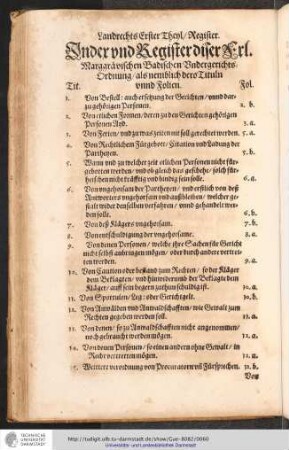 Landrechts Erster Theyl / Register.
Index vnd Register diser Erl.
Margarävischen Badischen Vndergerichts
Ordnung / als nemblich dero Tituln
vnnd Folien.
Tit. Fol.
1. Von Bestell: auch ersetzung der Gerichten / vnnd dar-
zu gehörigen Personen. 1. b.
2. Von etlichen Formen / deren zu den Gerichten gehörigen
Personen Ayd. 3. a.
3. Von Ferien / vnd zu was zeiten nit soll gerechtet werden. 5. a.
4. Von Rechtlichem Fürgebott / Citation vnd Ladung der
Partheyen. 5. b.
5. Wann vnd zu welcher zeit etlichen Personen nicht für-
gebotten werden / vnd ob gleich das geschehe / solch für-
heischen nicht kräfftig vnd bindig sein solle. 6. a.
6. Von vngehorsam der Partheyen / vnd erstlich von deß
Antworters vngehorsam vnd außbleiben / welcher ge-
stalt wider denselben verfahren / vnnd gehandelt wer-
den solle. 6. b.
7. Von deß Klägers vngehorsam. 7. b.
8. Von entschuldigung der vngehorsame. 8. a.
9. Von denen Personen / welche ihre Sachen für Gericht
nicht selbst außtragen mögen / oder durch andere vertret-
ten werden. 9. a.
10. Von Caution oder bestand zum Rechten / so der Kläger
dem Beklagten / vnd hinwiderumb der Beklagte dem
Kläger / auff sein begern zuthun schuldig ist. 10. a.
11. Von Sportulen / Leg: oder Gerichtgelt. 10. b.
12. Von Anwälden vnd Anwaldschafften / wie Gewalt zum
Rechten gegeben werden soll. 11. a.
13. Von denen / so zu Anwaldschafften nicht angenommen /
noch gebraucht werden mögen. 11. a.
14. Von denen Personen / so einen andern ohne Gewalt / in
Recht vertretten mögen. 11. a.
15. Weittere verordnung von Procuratorn vñ Fürsprechen. 11. b.
Von
TECHNISCHE
UNIVERSITÄT
DARMSTADT
http://tudigit.ulb.tu-darmstadt.de/show/Gue-8082/0060
Universitäts- und Landesbibliothek Darmstadt